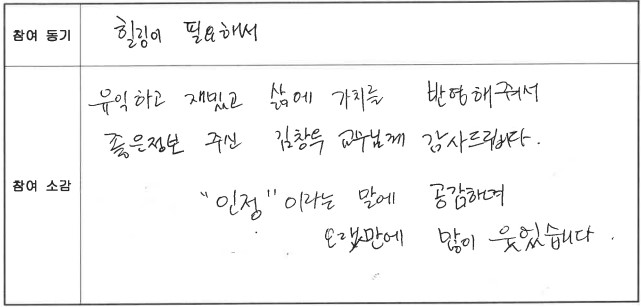 참여 동기
힐링이 필요해서
참여 소감
유익하고 재밌고 삶에 가치를 반영해줘서
좋은정보 주신 김창옥 교수님께 감사드립니다.
"인정"이라는 말에 공감하며
오랫만에 많이 웃었습니다.